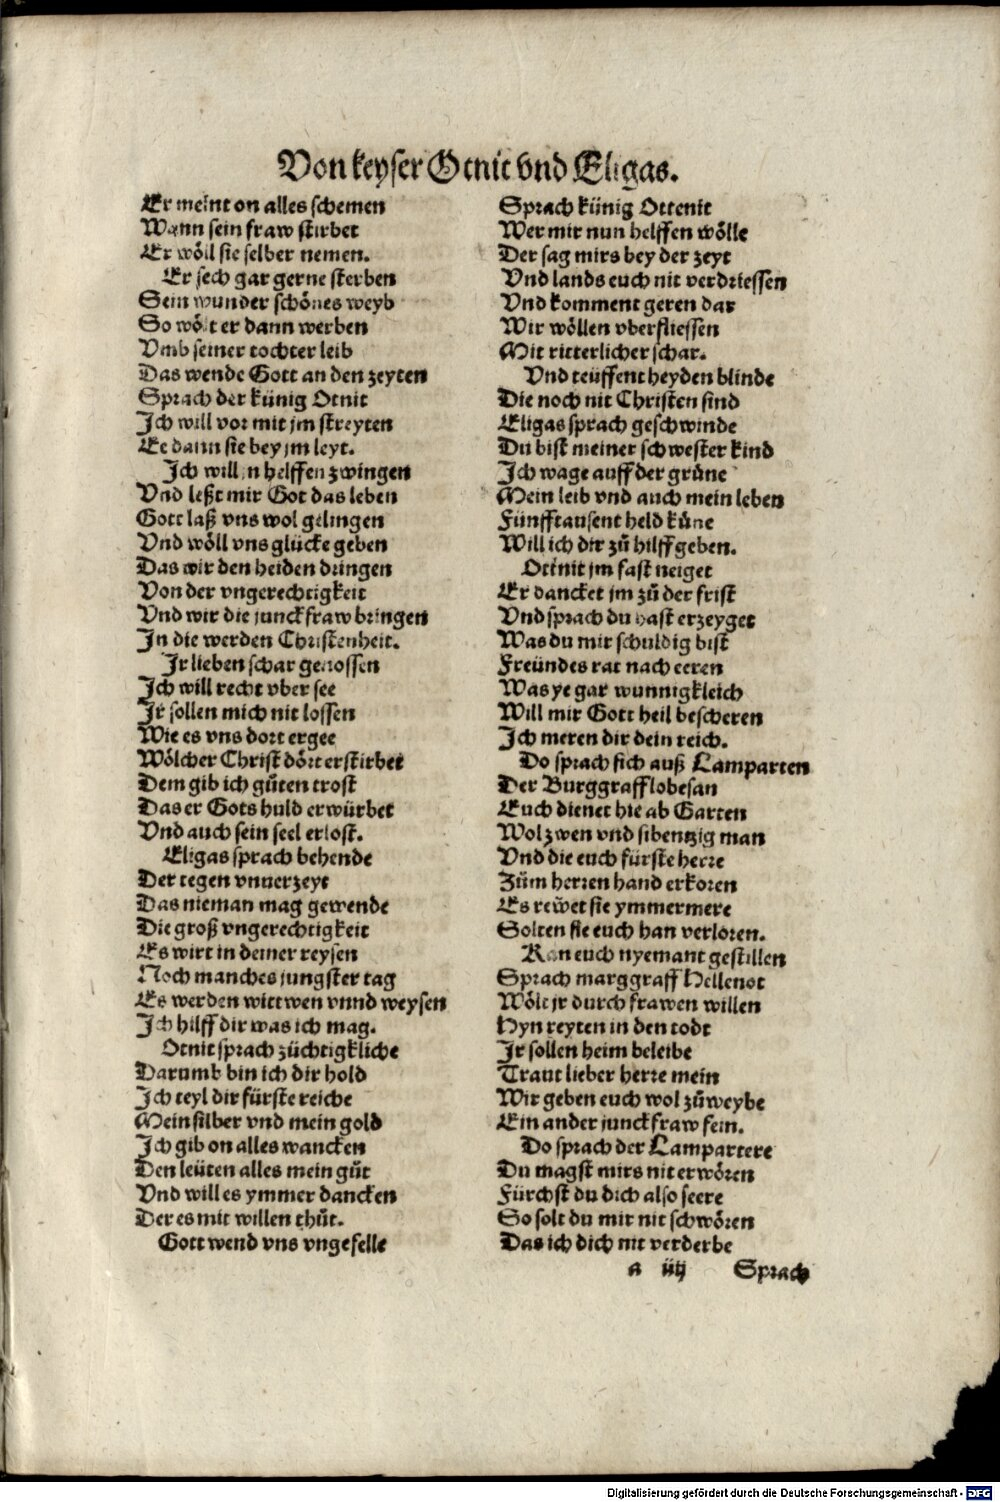 Von keyser Otnit vnd Eligas.
Er meint on alles schemen
Wann sein fraw stirbet
Er wöll sie selber nemen.
Er sech gar gerne sterben
Sein wunder schönes weyb
So wölt er dann werben
Vmb seiner tochter leib
Das wende Gott an den zeyten
Sprach der künig Otnit
Ich will vor mit jm streyten
Ee dann sie bey jm leyt.
Ich will jn helffen zwingen
Vnd leßt mir Got das leben
Gott laß vns wol gelingen
Vnd wöll vns glücke geben
Das wir den heiden dringen
Von der vngerechtigkeit
Vnd wir die junckfraw bringen
In die werden Christenheit.
Ir lieben schar genossen
Ich will recht vber see
Ir sollen mich nit lossen
Wie es vns dort ergee
Wölcher Christ dört erstirbet
Dem gib ich gůten trost
Das er Gots huld erwürbet
Vnd auch sein seel erlost.
Eligas sprach behende
Der tegen vnuerzeyt
Das nieman mag gewende
Die groß vngerechtigkeit
Es wirt in deiner reysen
Noch manches jungster tag
Es werden wittwen vnnd weysen
Ich hilff dir was ich mag.
Otnit sprach züchtigkliche
Darumb bin ich dir hold
Ich teyl dir fürste reiche
Mein silber vnd mein gold
Ich gib on alles wancken
Den leüten alles mein gůt
Vnd will es ymmer dancken
Der es mit willen thůt.
Gott wend vns vngefelle
Sprach künig Ottenit
Wer mir nun helffen wölle
Der sag mirs bey der zeyt
Vnd lands euch nit verdriessen
Vnd komment geren dar
Wir wöllen vberfliessen
Mit ritterlicher schar.
Vnd teüffent heyden blinde
Die noch nit Christen sind
Eligas sprach geschwinde
Du bist meiner schwester kind
Ich wage auff der grůne
Mein leib vnd auch mein leben
Fünfftausent held kůne
Will ich dir zů hilff geben.
Otinit jm fast neiget
Er dancket jm zů der frist
Vnd sprach du hast erzeyget
Was du mir schuldig bist
Freündes rat nach eeren
Was ye gar wunnigkleich
Will mir Gott heil bescheren
Ich meren dir dein reich.
Do sprach sich auß Lamparten
Der Burggraff lobesan
Euch dienet hie ab Garten
Wol zwen vnd sibentzig man
Vnd die euch fürste herre
Zům herren hand erkoren
Es reẅet sie ymmermere
Solten sie euch han verloren.
Kan euch nyemant gestillen
Sprach marggraff Hellenot
Wölt jr durch frawen willen
Hyn reyten in den todt
Ir sollen heim beleibe
Traut lieber herre mein
Wir geben euch wol zů weybe
Ein ander junckfraw fein.
Do sprach der Lampartere
Du magst mirs nit erwören
Fürchst du dich also seere
So solt du mit nit schwören
Das ich dich nit verderbe
a iiij Sprach
Digitalisierung gefördert durch die Deutsche Forschungsgemeinschaft - DFG